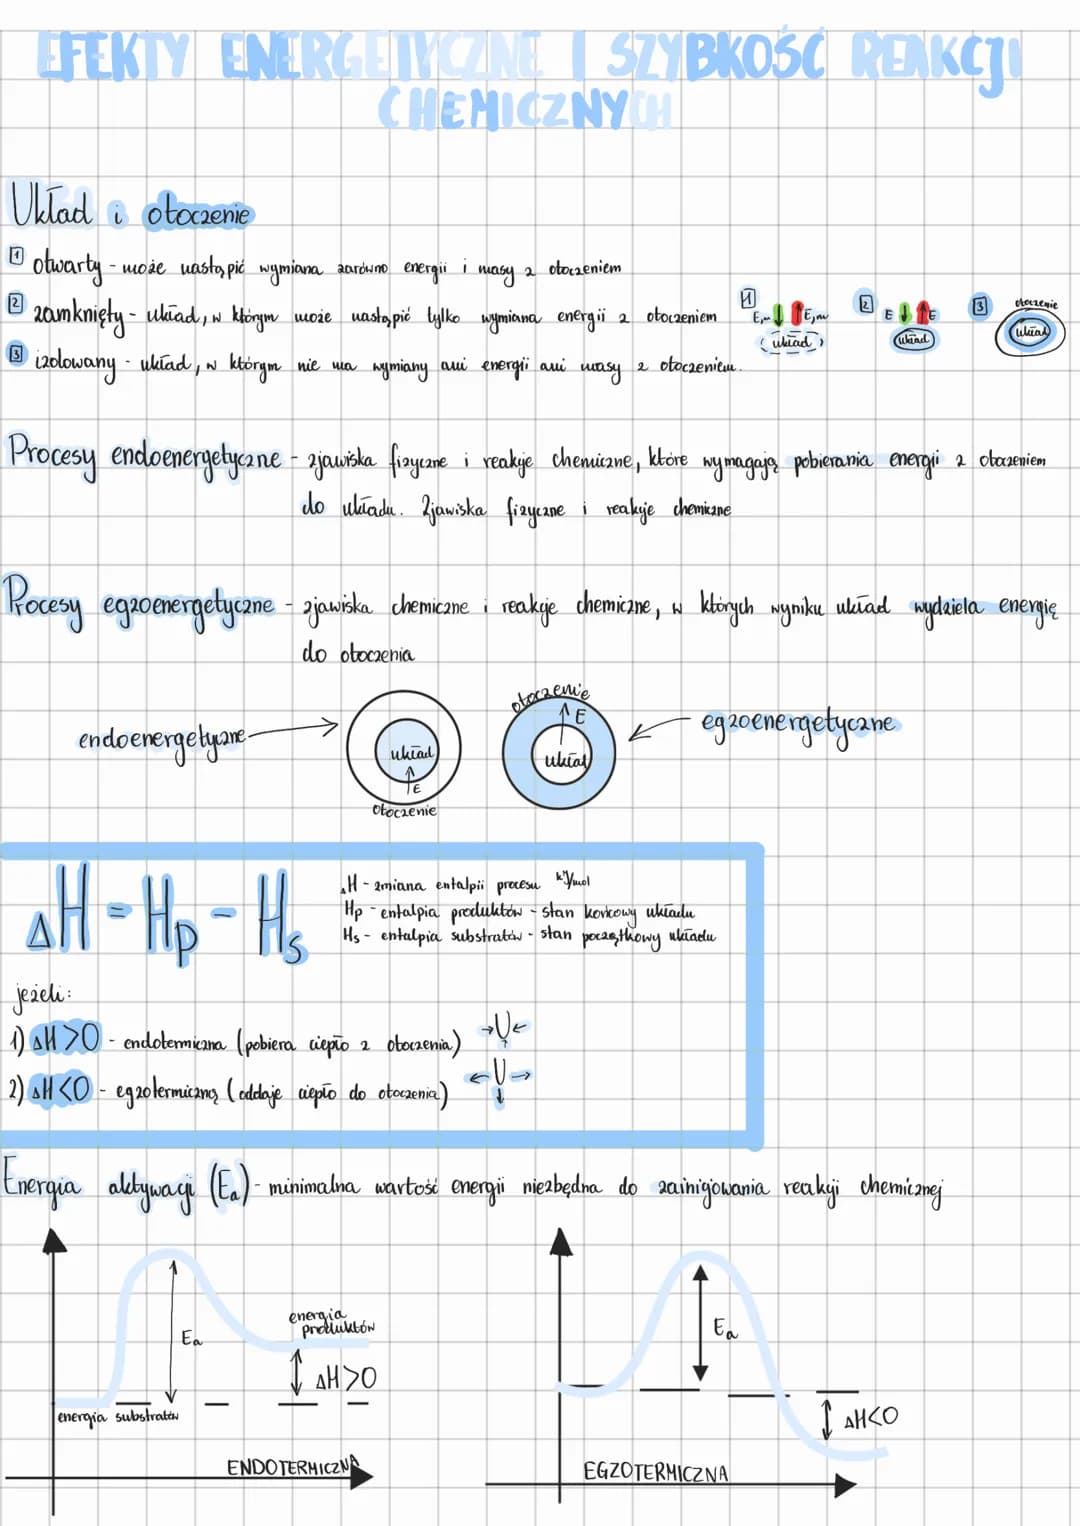 EFEKTY ENERGETYCZNE I SZYBKOŚĆ REAKCJI
CHEMICZNYCH
Układ i otoczenie
1 otwarty - może nastąpić wymiana zarówno energii i masy z otoczeniem
2 zamknięty - układ, w którym może nastąpić tylko wymiana energii z otoczeniem
3 izolowany - układ, w którym nie ma wymiany ani energii ani masy z otoczeniem.
1 E,m E,m
układ
2 E E
układ
3 otoczenie
układ
Procesy endoenergetyczne - zjawiska fizyczne i reakcje chemiczne, które wymagają pobierania energii z otoczeniem
do układu. Zjawiska fizyczne i reakcje chemiczne
Procesy egzoenergetyczne - zjawiska chemiczne i reakcje chemiczne, w których wyniku układ wydziela energię
do otoczenia
endoenergetyczne
układ
E
otoczenie
otoczenie
E
układ
egzoenergetyczne
ΔH = Hp - Hs
ΔH - zmiana entalpii procesu kJ/mol
Hp - entalpia produktów - stan końcowy układu
Hs - entalpia substratów - stan początkowy układu
jeżeli:
1) ΔH >0 - endotermiczna (pobiera ciepło z otoczenia) →U←
↑
2) ΔH <0 - egzotermiczną (oddaje ciepło do otoczenia) ←U→
↓
Energia aktywacji (Ea) - minimalna wartość energii niezbędna do zainicjowania reakcji chemicznej
Ea
energia
produktów
ΔH>0
energia substratów
ENDOTERMICZNA
Ea
ΔH<0
EGZOTERMICZNA